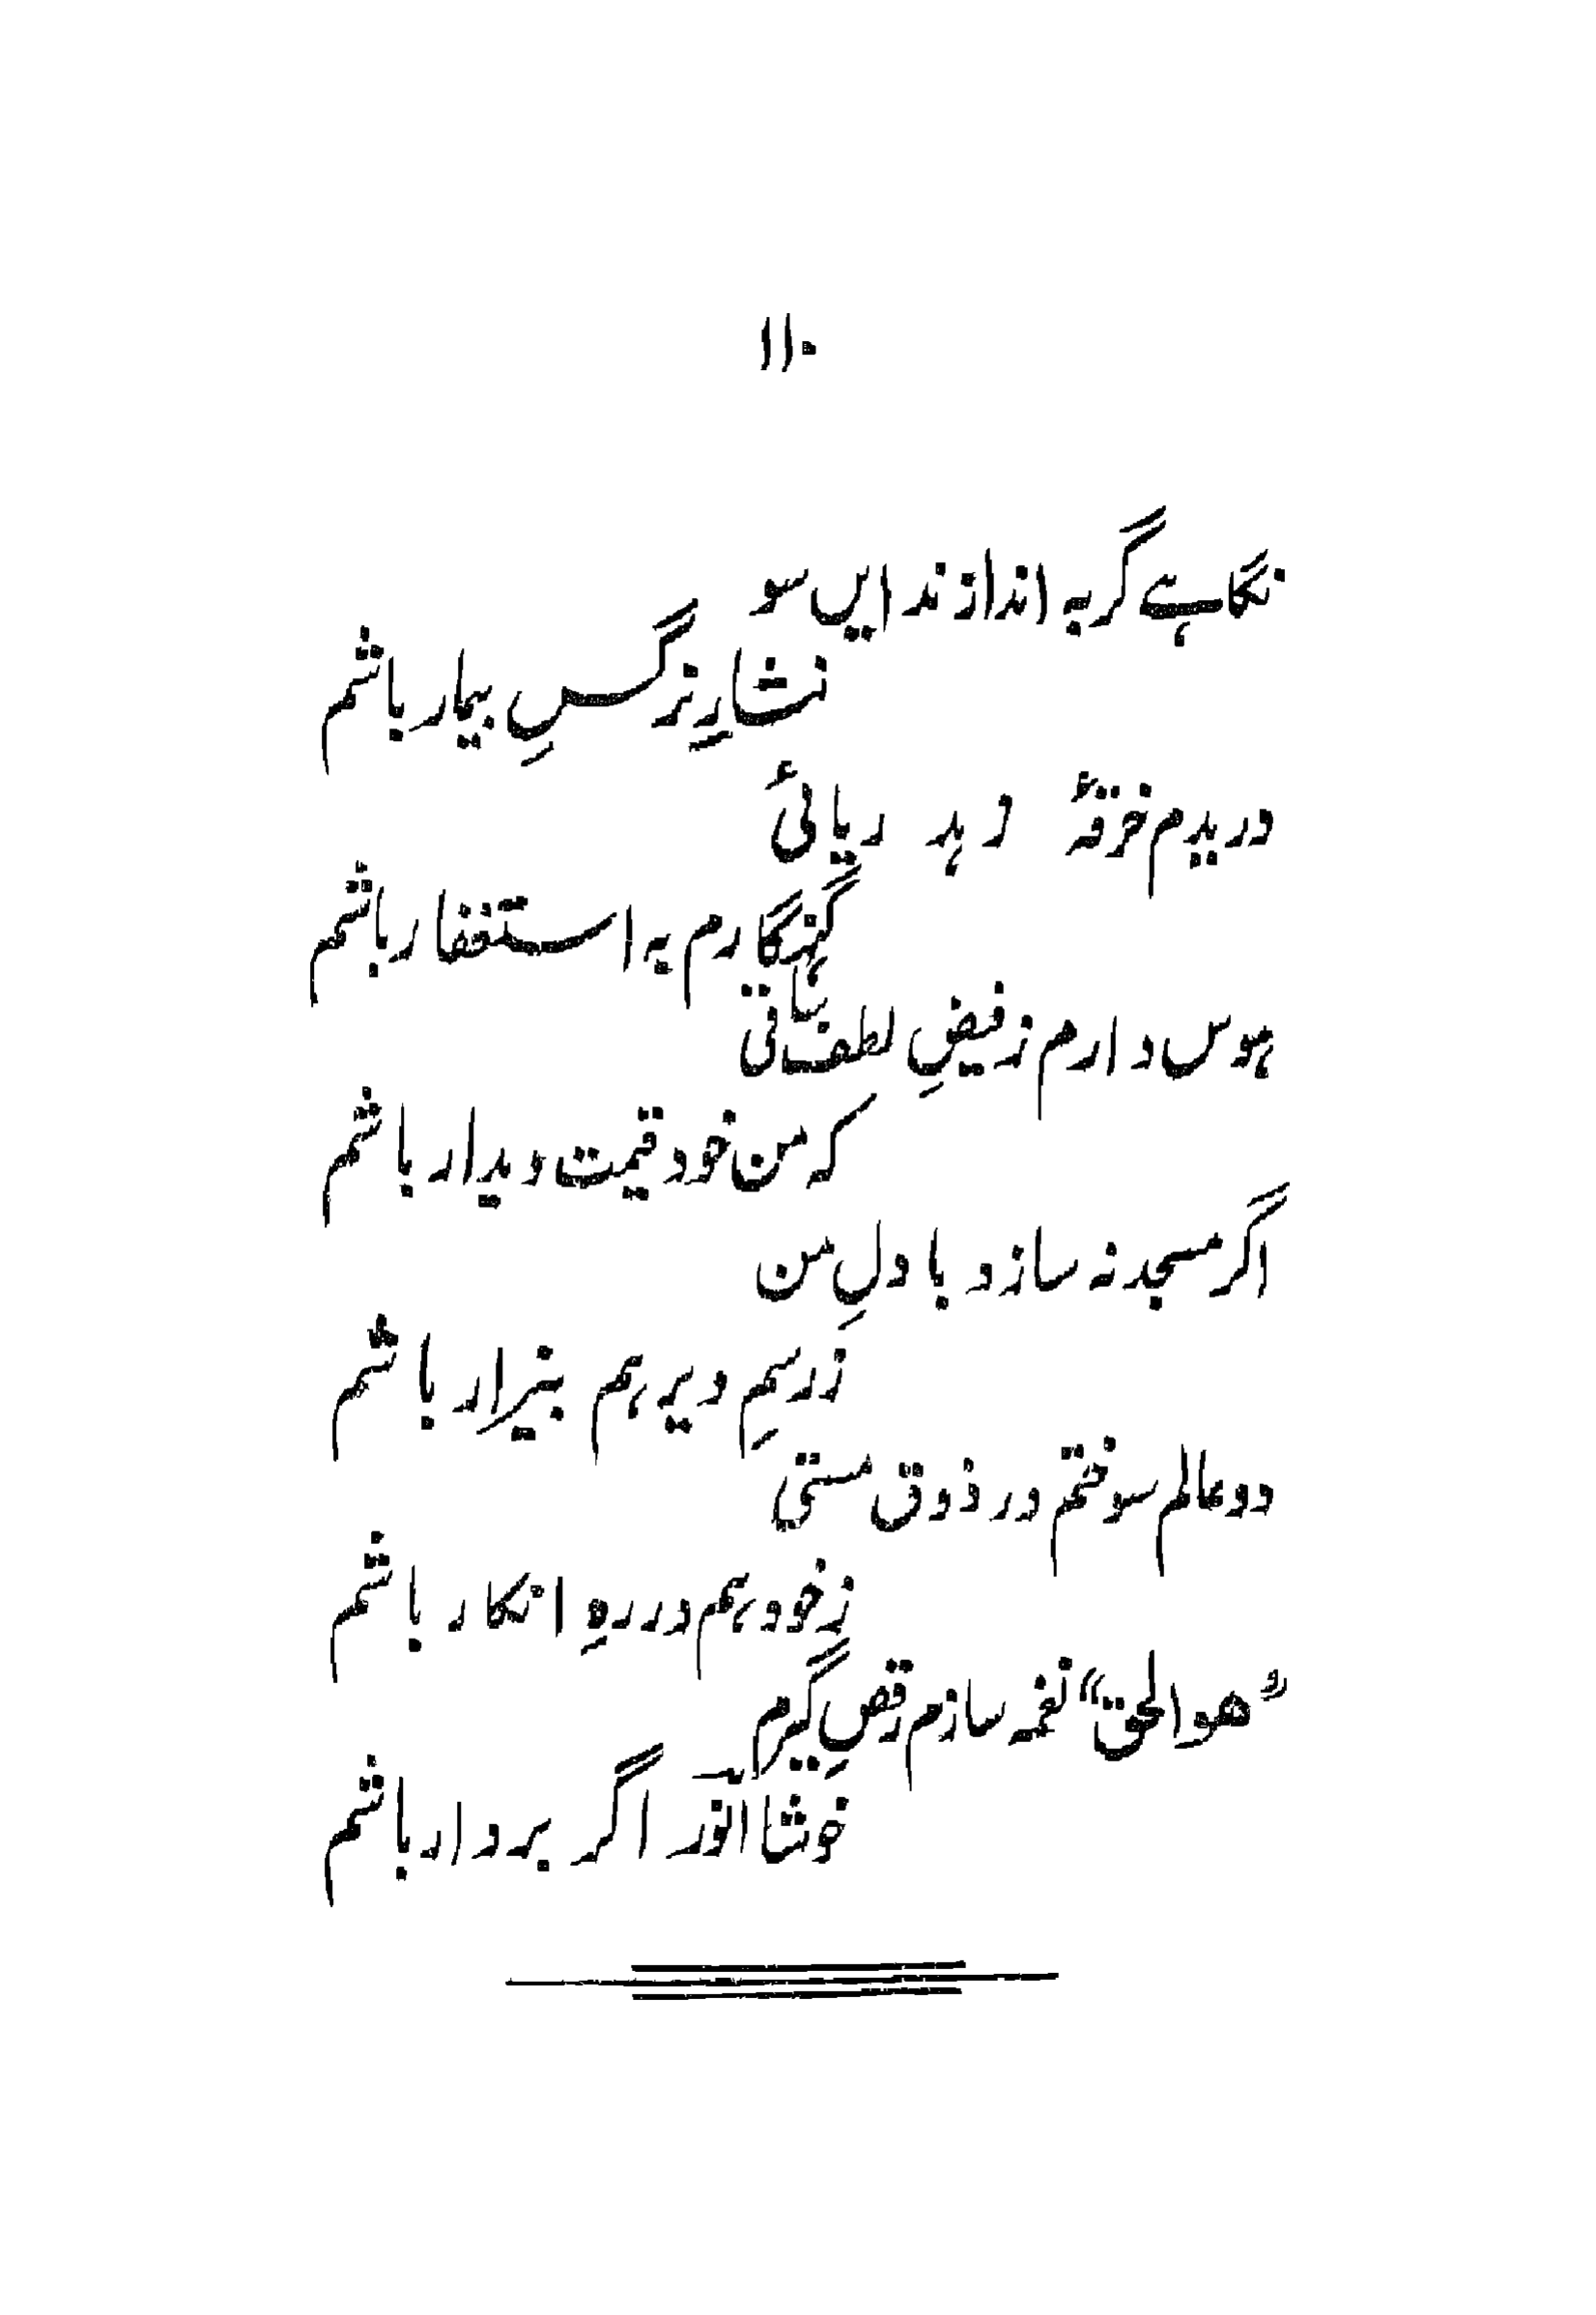 ۱۱۰
نگاہے گر بہ اندازند ایں سو
نثارِ نرگسِ بیمار باشم
دریدم خرقۂ زہد ریائی
گنہگارم بہ استغفار باشم
ہوس دارم ز فیضِ لطف ساقی
کہ من خود قیمت دیدار باشم
اگر مسجد نہ سازد با دلِ من
ز رسمِ دیر ہم بیزار باشم
دو عالم سوختم در ذوق مستی
ز خود ہم در رہِ انکار باشم
"ھو الحق" نغمہ سازم رقصِ گیرم
خوشا انور اگر بردار باشم